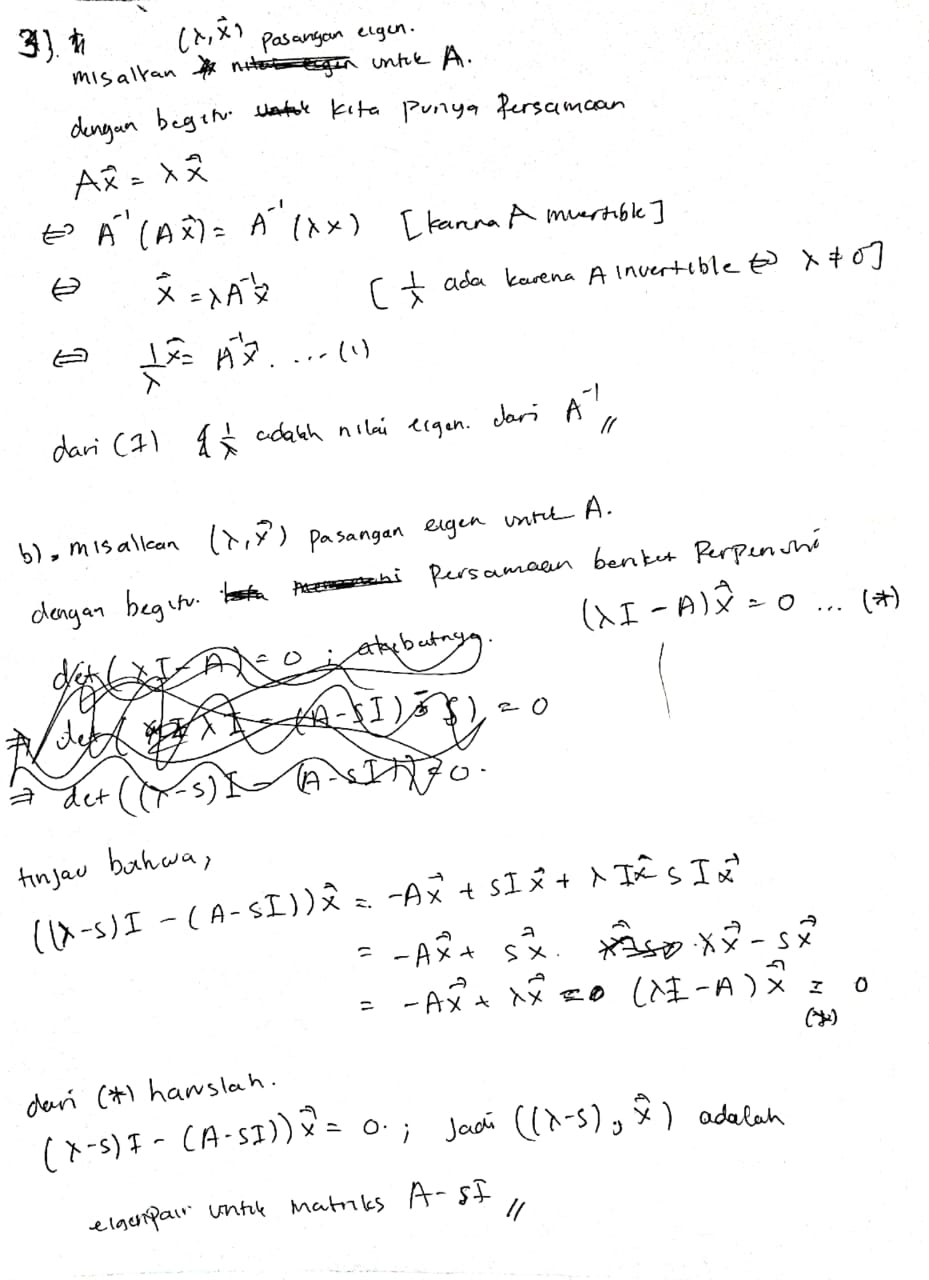 3).
(λ, x⃗) pasangan eigen.
misalkan untuk A.
dengan begitu. kita punya Persamaan
Ax⃗ = λx⃗
⇔ A⁻¹(Ax⃗) = A⁻¹(λx) [karena A invertible]
⇔ x⃗ = λA⁻¹x⃗ [1/λ ada karena A invertible ⇔ λ ≠ 0]
⇔ 1/λ x⃗ = A⁻¹x⃗. ... (1)
dari (1) 1/λ adalah nilai eigen. dari A⁻¹ //
b). misalkan (λ, x⃗) pasangan eigen untuk A.
dengan begitu. Persamaan berikut
(λI - A)x⃗ = 0 ... (*)
det(λI - A) = 0 ; akibatnya.
= 0
⇒ det((λ-s)I - (A-sI)) = 0.
tinjau bahwa,
((λ-s)I - (A-sI))x⃗ = -Ax⃗ + sIx⃗ + λIx⃗ sIx⃗
= -Ax⃗ + sx⃗. λx⃗ - sx⃗
= -Ax⃗ + λx⃗ (λI - A)x⃗ = 0
(*)
dari (*) haruslah.
(λ-s)I - (A-sI))x⃗ = 0. ; Jadi ((λ-s), x⃗) adalah
eigenpair untuk matriks A - sI //